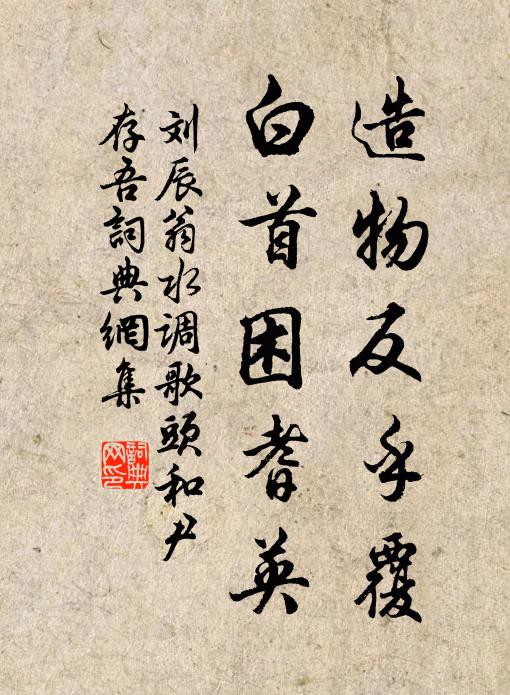 造物反手覆
白首困耆英
刘辰翁水调歌头和尹
存吾詞典網集
詞典
网印